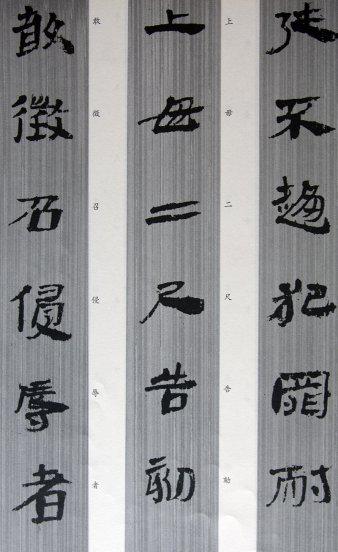 廷不趨犯罪耐
上毋二尺告劾
上毋二尺告劾
敢徵召侵辱者
敢徵召侵辱者